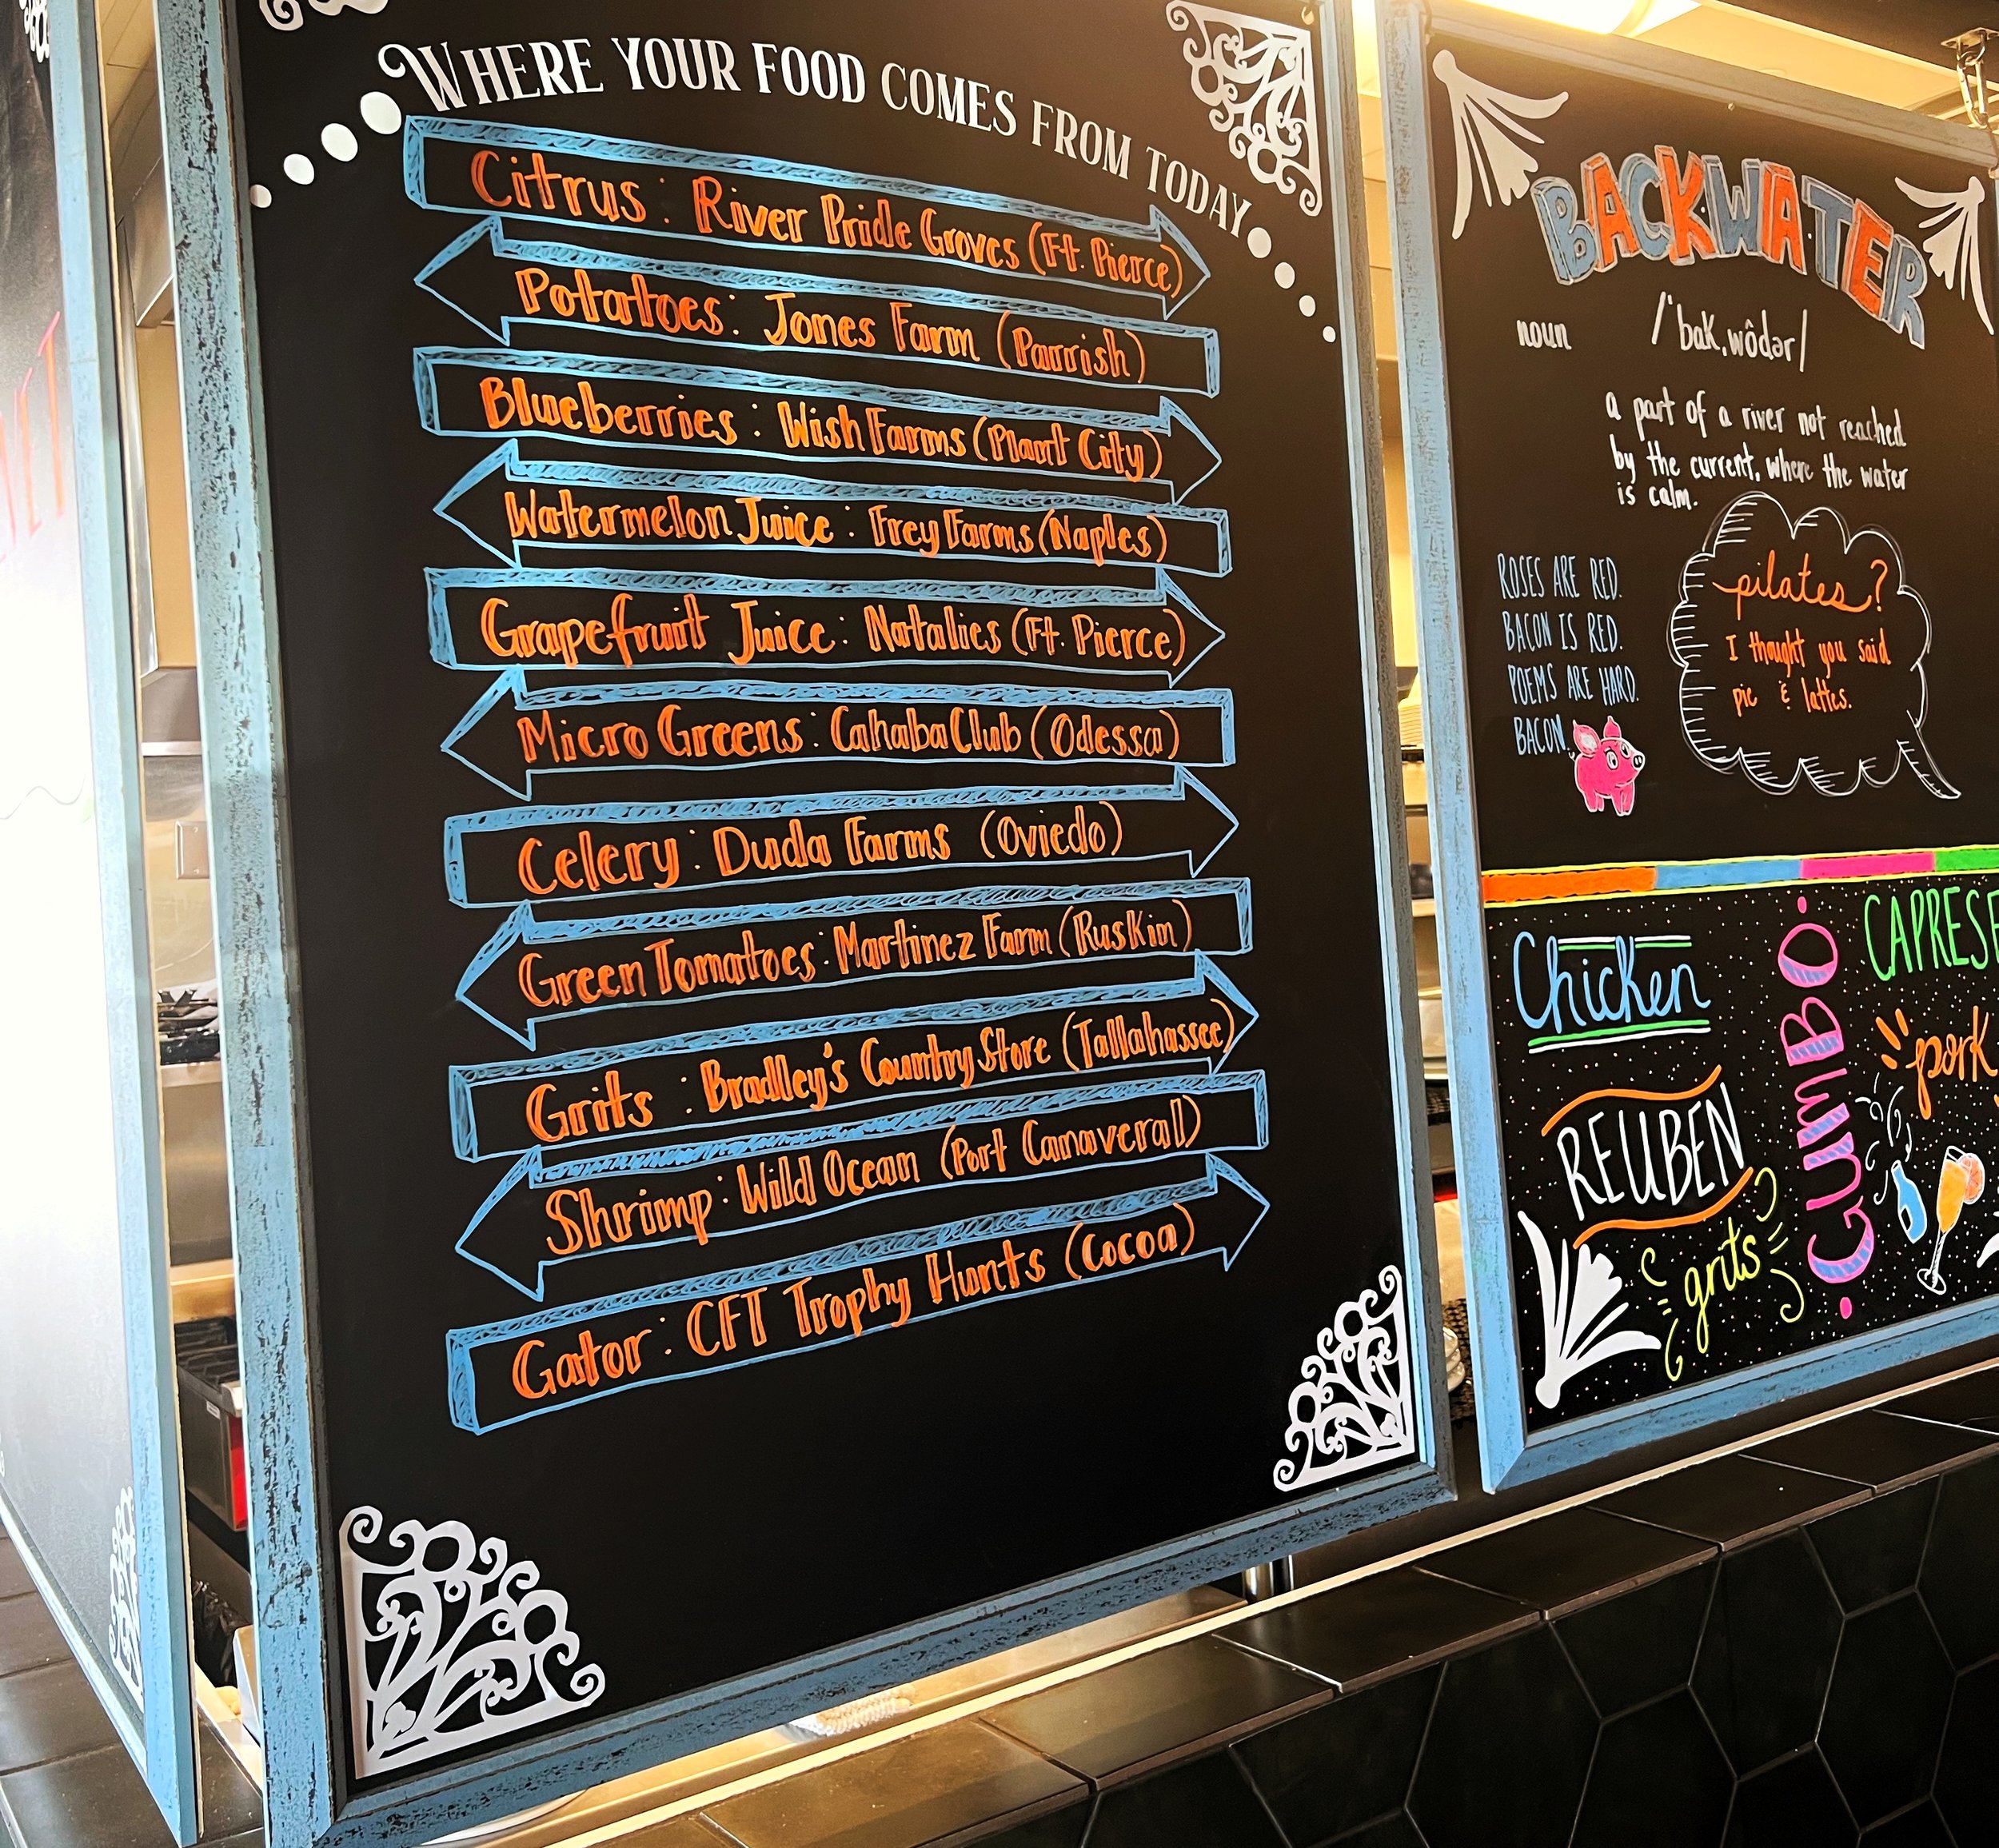 WHERE YOUR FOOD COMES FROM TODAY
Citrus: River Pride Groves (Ft. Pierce)
Potatoes: Jones Farm (Parrish)
Blueberries: Wish Farms (Plant City)
Watermelon Juice: Frey Farms (Naples)
Grapefruit Juice: Natalies (Ft. Pierce)
Micro Greens: Cahaba Club (Odessa)
Celery: Duda Farms (Oviedo)
Green Tomatoes: Martinez Farm (Ruskin)
Grits: Bradley's Country Store (Tallahassee)
Shrimp: Wild Ocean (Port Canaverall)
Gator: CFT Trophy Hunts (Cocoa)
BACKWATER
noun /ˈbakˌwôdər/
a part of a river not reached
by the current, where the water
is calm.
ROSES ARE RED.
BACON IS RED.
POEMS ARE HARD.
BACON.
pilates?
I thought you said
pie & lattes.
Chicken
GUMBO
CAPRESE
pork
REUBEN
grits